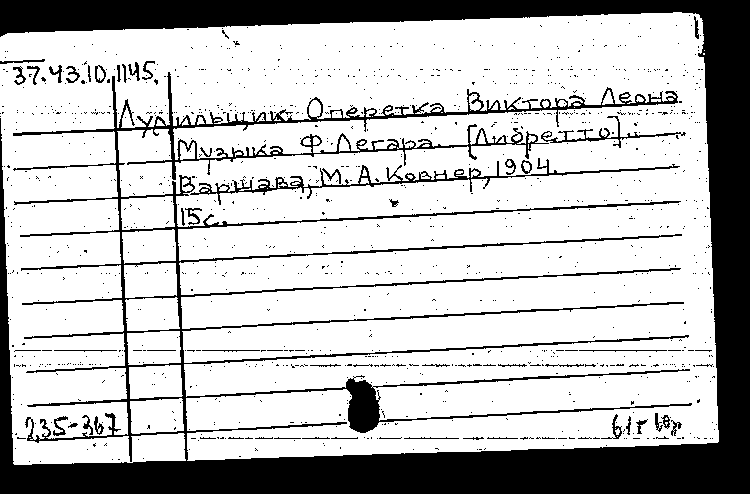 37.43.10.1145.
Лудильщик. Оперетка Виктора Леона
Музыка Ф. Легара. [Либретто].
Варшава, М. А. Ковнер, 1904.
15с.
235-367
61г